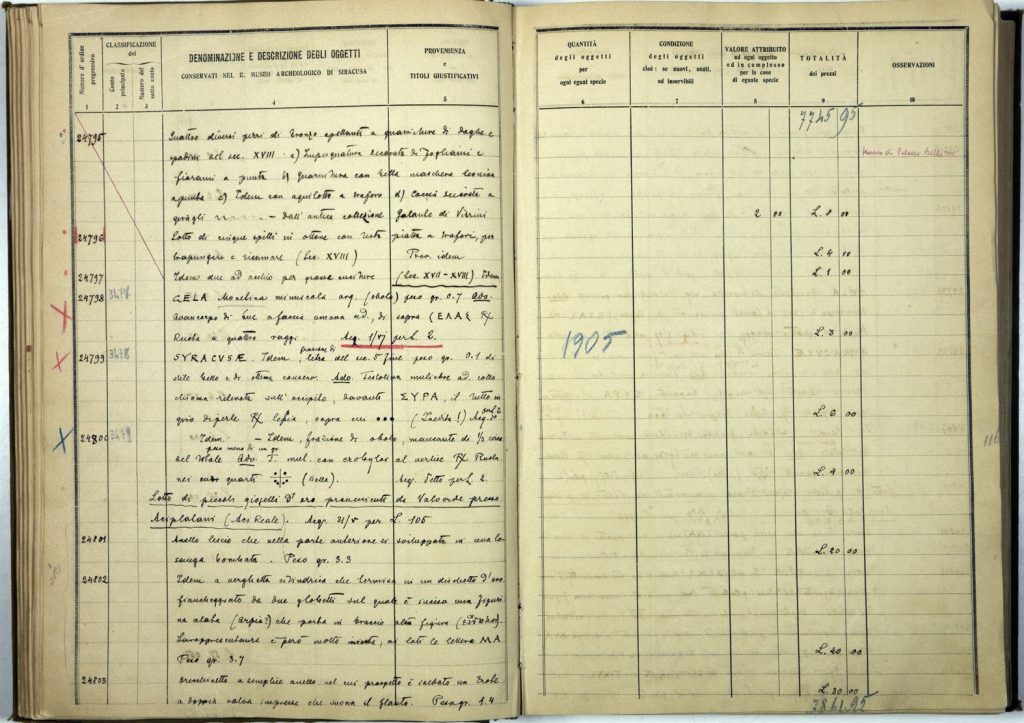 Numero d'ordine progressivo
CLASSIFICAZIONE
del
Conto principale
Numero del sotto conto
DENOMINAZIONE E DESCRIZIONE DEGLI OGGETTI
CONSERVATI NEL R. MUSEO ARCHEOLOGICO DI SIRACUSA
PROVENIENZA
e
TITOLI GIUSTIFICATIVI
1 2 3 4 5
24795 Quattro diversi pezzi di bronzo spettanti a guarniture di daghe e
spadini del sec. XVIII. a) Impugnatura decorata di fogliami e
fiorami a punta b) Guarnitura con bella maschera leonina
c) Idem con aquilotto a traforo d) Coccia decorata a
- Dall'antica collezione Galante di Vizzini
24796 Lotto di cinque spilli in ottone con testa piatta a trafori, per
trapungere e ricamare (Sec. XVIII) Prov. idem
24797 Idem due ad occhio per grossa cucitura (Sec. XVII-XVIII) Idem
24798 3477 GELA Monetina minuscola arg. (obolo) peso gr. 0.7 Adv.
Avancorpo di bue a faccia umana ad., di sopra CΕΛΑΣ R)
Ruota a quattro raggi. Acq. 1/VI per L. 2.
24799 3478 SYRACUSÆ. Idem, frazione di litra del sec. 5 fine peso gr. 0.1 di
stile bello e di ottima conserv. Adv. Testolina muliebre ad. colla
chioma rilevata sull'occipite, davanti ΣΥΡΑ, il tutto in
giro di perle R) Sepia, sopra cui ••• (Inedita!) Acq. per L. 2
24800 3479 Idem. - Idem, frazione di obolo, mancante di 1/3 circa
peso meno di un gr.
del totale Adv. T. mul. con crobylos al vertice R) Ruota
nei cui quarti (Bella). Acq. Tetto per L. 2.
Lotto di piccoli gioielli d'oro provenienti da Valverde presso
Aciplatani (Aci Reale). Acq. 31/V per L. 105
24801 Anello liscio che nella parte anteriore si sviluppata in una lo-
sanga bombata. Peso gr. 3.3
24802 Idem a verghetta cilindrica che termina in un dischetto d'oro
fiancheggiato da due globetti sul quale è incisa una figuri-
na alata (arpia?) che porta in braccio altra figura
La rappresentanza è però molto incerta; ai lati le lettere MA
Peso gr. 3.7
24803 Orecchinetto a semplice anello nel cui prospetto è saldato un Erote
a doppia valva impressa che suona il flauto. Peso gr. 1.4
QUANTITÀ
degli oggetti
per
ogni egual specie
CONDIZIONE
degli oggetti
cioè: se nuovi, usati,
od inservibili
VALORE ATTRIBUITO
ad ogni oggetto
ed in complesso
per le cose
di eguale specie
TOTALITÀ
dei prezzi
OSSERVAZIONI
6 7 8 9 10
7745 95
Museo di Palazzo Bellomo
2 00 L. 8 00
L. 4 00
L. 1 00
1905 L. 3 00
L. 6 00
L. 4 00
L. 20 00
L. 20 00
L. 30 00
7841.95